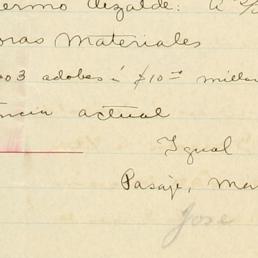 ermo Elizalde: a
oras materiales
003 adobes á $10 00 millar
ncia actual
Igual
Pasaje, Mar
Jose